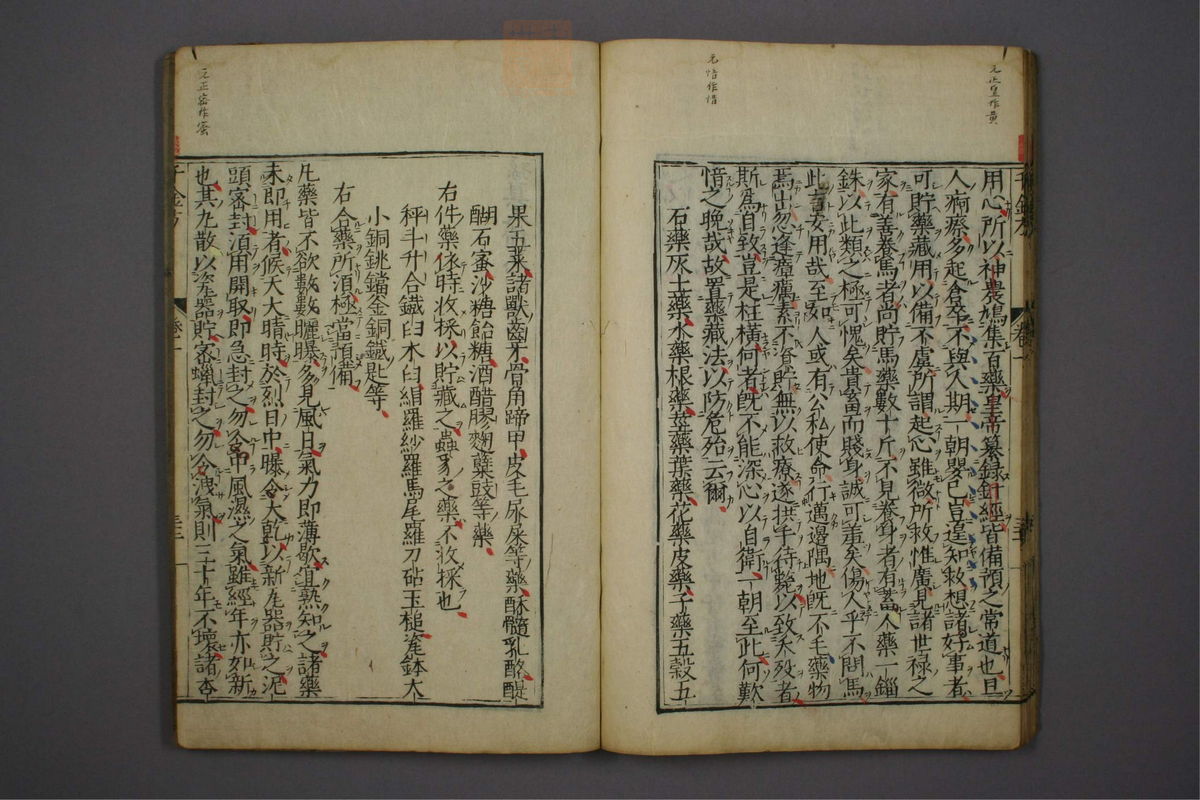 元正皇作黄
用心所以神農鳩集百藥皇帝纂録針經皆備預之常道也且
人痾瘵多起倉卒不與人期一朝嬰已豈遑知救想諸好事者
可貯藥藏用以備不虞所謂起心雖微所救惟廣見諸世禄之
家有善養馬者尚貯馬藥數十斤不見養身者有蓄人藥一錙
銖以此類之極可愧矣貴畜而賤身誠可羞矣傷人乎不問馬
此言安用哉至如人或有公私使命行邁邊隅地既不毛藥物
焉出忽逢瘴癘素不資貯無以救療遂拱手待斃以致夭歿者
斯為自致豈是枉橫何者既不能深心以自衛一朝至此何歎
惜之晚哉故置藥藏法以防危殆云爾
石藥灰土藥水藥根藥莖藥葉藥花藥皮藥子藥五穀五
元惜作惜
果五菜諸獸齒牙骨角蹄甲皮毛尿屎等藥酥髓乳酪醍
醐石蜜沙糖飴糖酒醋膠麴糵豉等藥
右件藥依時收採以貯藏之蟲豸之藥不收採也
秤斗升合鐵臼木臼絹羅紗羅馬尾羅刀砧玉槌瓷鉢大
小銅銚鐺釜銅鐵匙等
右合藥所須極當預備
凡藥皆不欲數數曬曝多見風日氣力即薄歇宜熟知之諸藥
未即用者候天大晴時於烈日中曝令大乾以新瓦器貯之泥
頭密封須用開取即急封之勿令中風濕之氣雖經年亦如新
也其丸散以瓷器貯密蠟封之勿令洩氣則三十年不壞諸杏
元正密作蜜
千金方
卷一